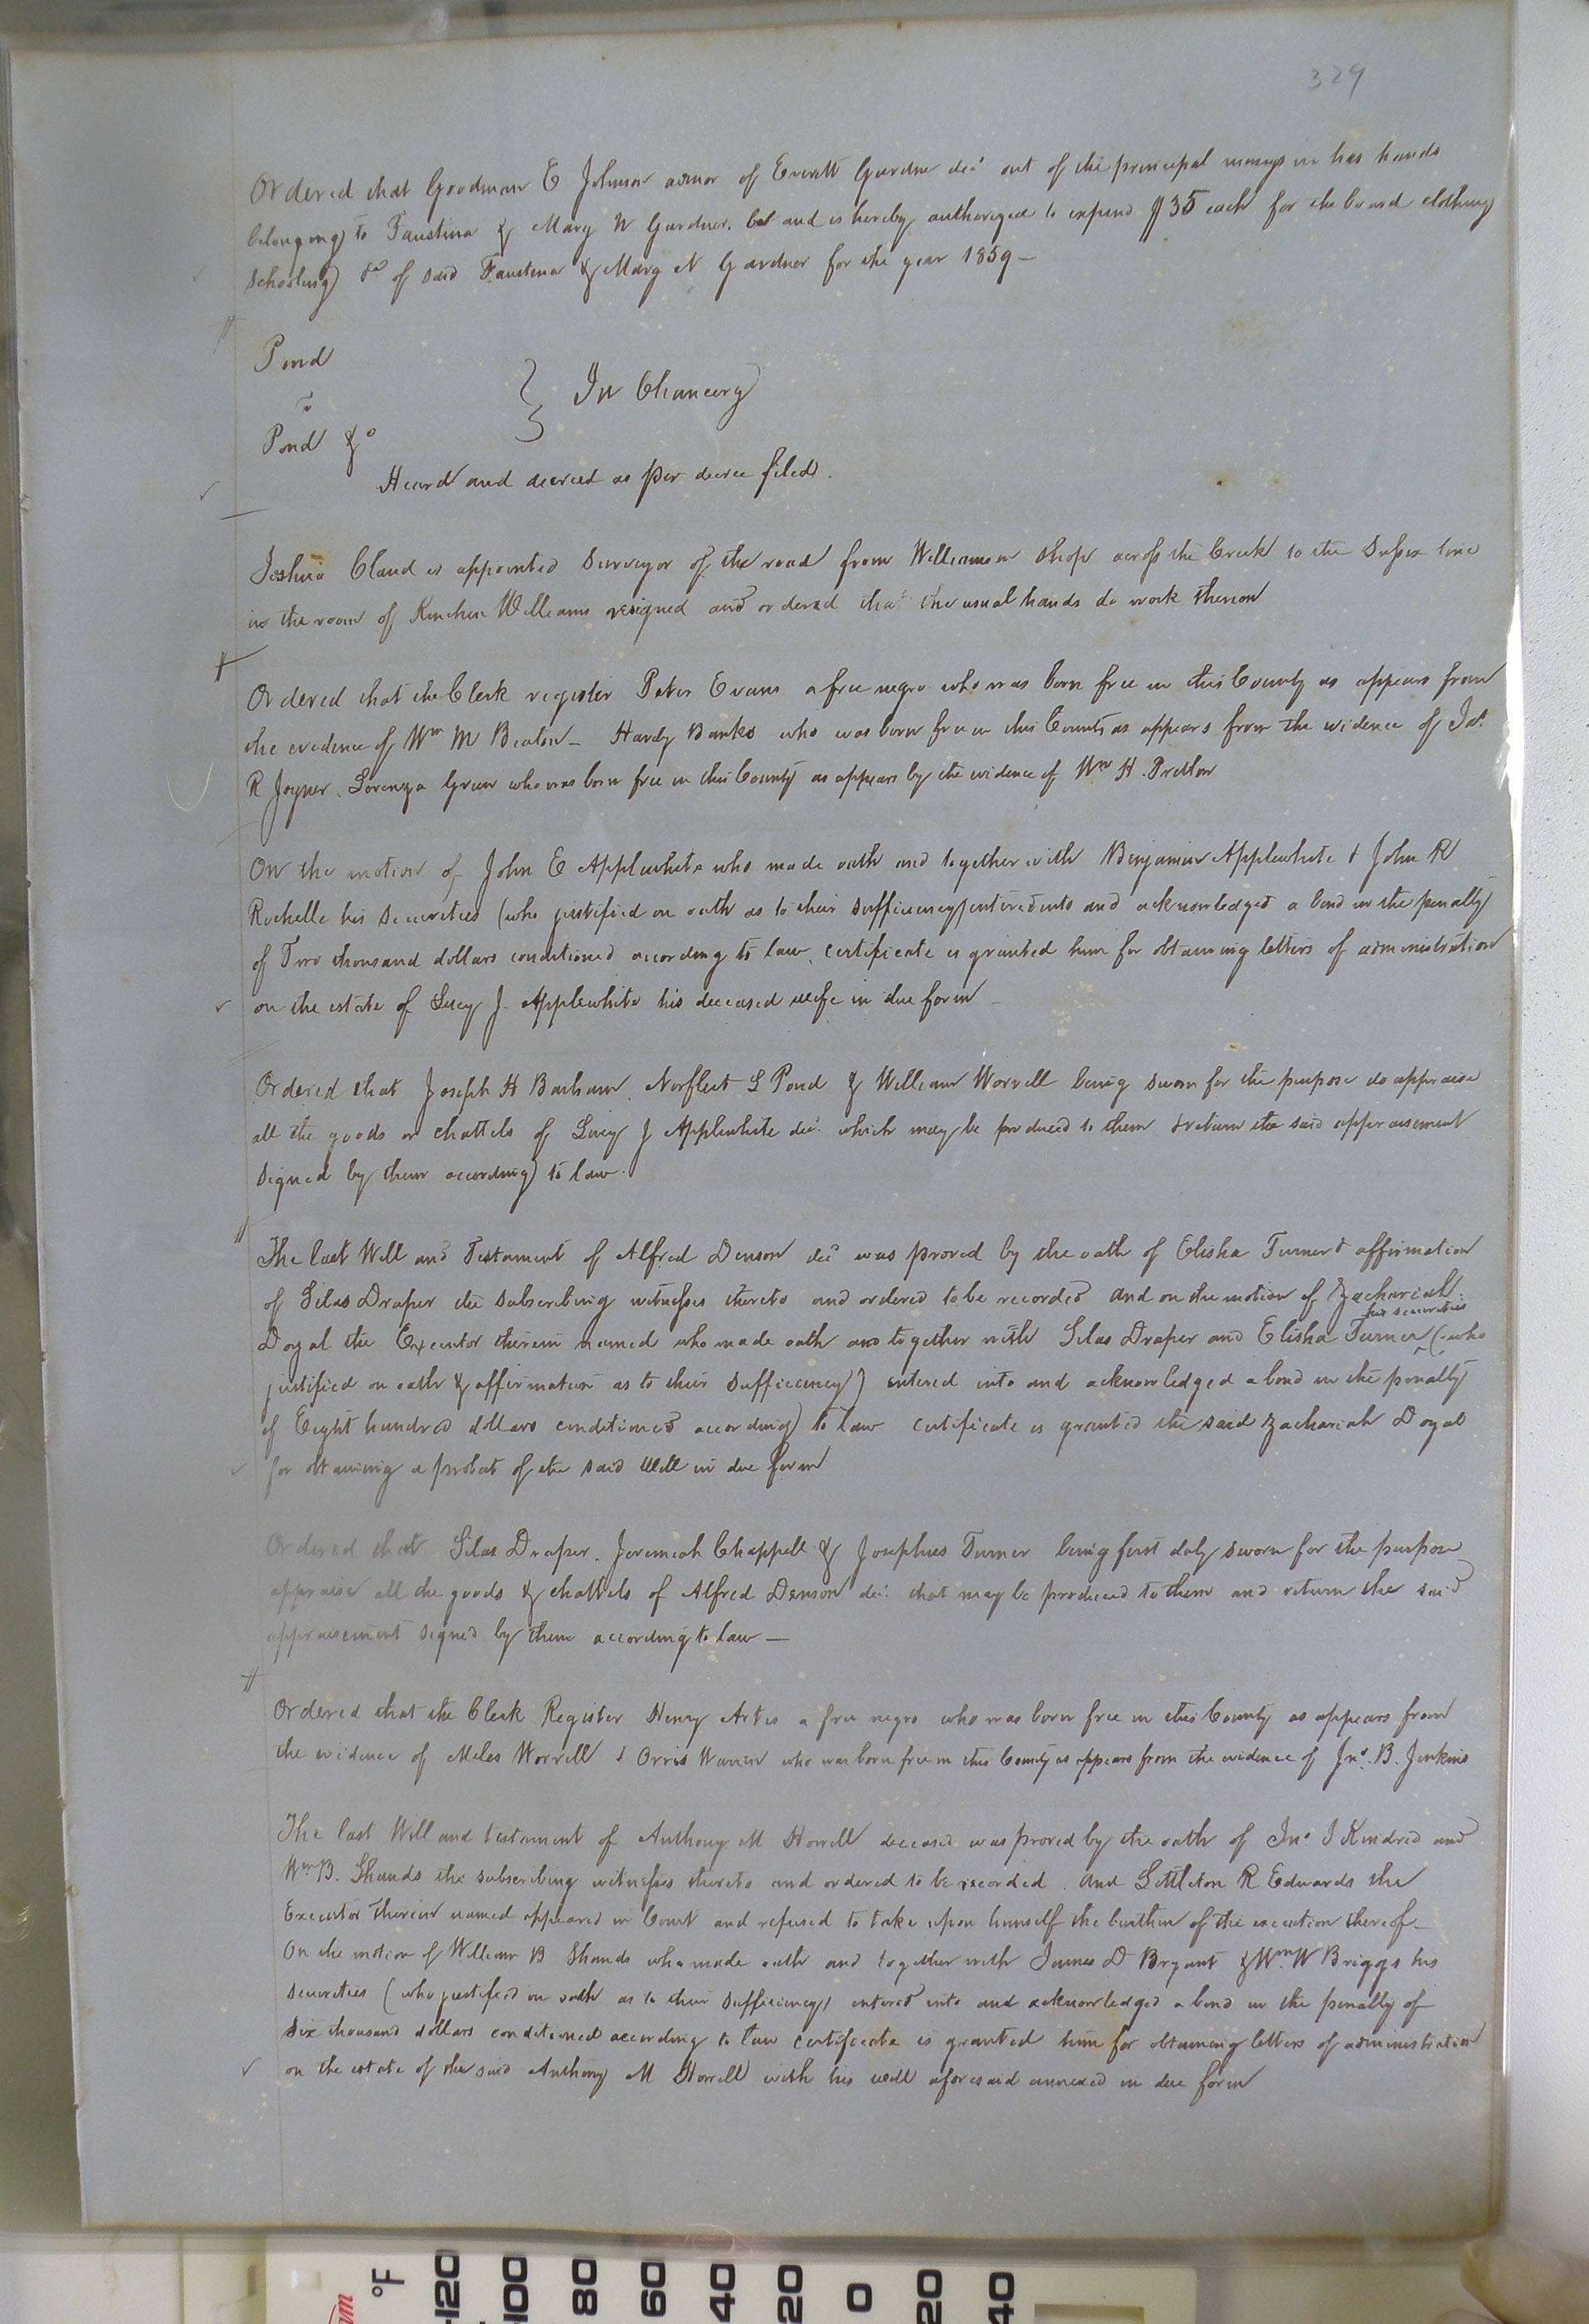 329
Ordered that Goodman E Johnson admor of Everett Gardner decd out of the principal moneys in his hands
belonging to Faustina & Mary N Gardner, be and is hereby authorized to expend $35 each for the board clothing
schooling &c of said Faustina & Mary N Gardner for the year 1859 –
Pond
vs
Pond &c } In Chancery
Heard and decreed as per decree filed.
Joshua Claud is appointed Surveyor of the road from Williamson Shop across the Creek to the Sussex line
in the room of Kinchen Williams resigned and ordered that the usual hands do work thereon
Ordered that the Clerk register Peter Evans a free negro who was born free in this County as appears from
the evidence of Wm M Beaton – Hardy Banks who was born free in this County as appears from the evidence of Jas.
R Joyner. Lorenza Green who was born free in this County as appears by the evidence of Wm H. Pretlow
On the motion of John E Applewhite who made oath and together with Benjamin Applewhite & John R
Rochelle his securities (who justified on oath as to their sufficiency) entered into and acknowledged a bond in the penalty
of Two thousand dollars conditioned according to law, certificate is granted him for obtaining letters of administration
on the estate of Lucy J. Applewhite his deceased wife in due form –
Ordered that Joseph H Barham, Norfleet L Pond & William Worrell being sworn for the purpose do appraise
all the goods or chattels of Lucy J Applewhite decd. which may be produced to them & return the said appraisement
signed by them according to law.
The last Will and Testament of Alfred Denson decd was proved by the oath of Elisha Turner & affirmation
of Silas Draper the subscribing witnesses thereto and ordered to be recorded and on the motion of Zachariah
Doyal the Executor therein named who made oath and together with Silas Draper and Elisha Turner his securities (who
justified on oath & affirmation as to their sufficiency) entered into and acknowledged a bond in the penalty
of Eight hundred dollars conditioned according to law certificate is granted the said Zachariah Doyal
for obtaining a probat of the said Will in due form
Ordered that Silas Draper, Jeremiah Chappell & Josephus Turner being first duly sworn for the purpose
appraise all the goods & chattels of Alfred Denson decd. that may be produced to them and return the said
appraisement signed by them according to law —
Ordered that the Clerk Register Henry Artis a free negro who was born free in this County as appears from
the evidence of Miles Worrell & Orris Warren who was born free in this County as appears from the evidence of Jno. B. Jenkins
The last Will and testament of Anthony M Horrell deceased was proved by the oath of Jno. J Kindred and
Wm B. Shands the subscribing witnesses thereto and ordered to be recorded. And Littleton R Edwards the
Executor therein named appeared in Court and refused to take upon himself the burthen of the execution thereof –
On the motion of William B Shands who made oath and together with James D Bryant & Wm W Briggs his
securities (who justified on oath as to their sufficiency) entered into and acknowledged a bond in the penalty of
Six thousand dollars conditioned according to law certificate is granted him for obtaining letters of administration
on the estate of the said Anthony M Horrell with his will aforesaid annexed in due form
°F
120 100 80 60 40 20 0 20 40